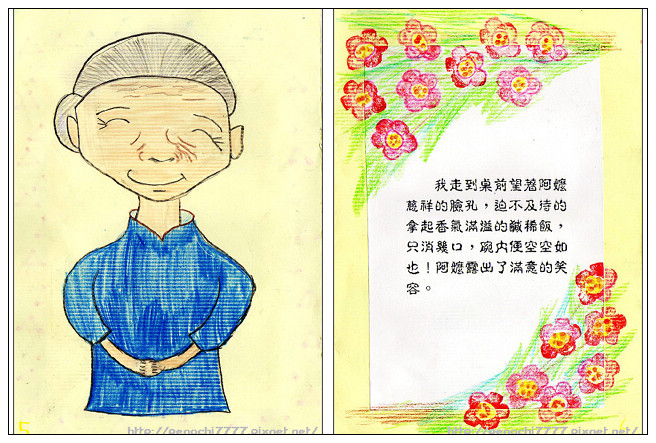 我走到桌前望著阿嬤
慈祥的臉孔,迫不及待的
拿起香氣滿溢的鹹稀飯,
只消幾口,碗內便空空如
也!阿嬤露出了滿意的笑
容。
5
http://penochi7777.pixnet.net/
http://penochi7777.pixnet.net/